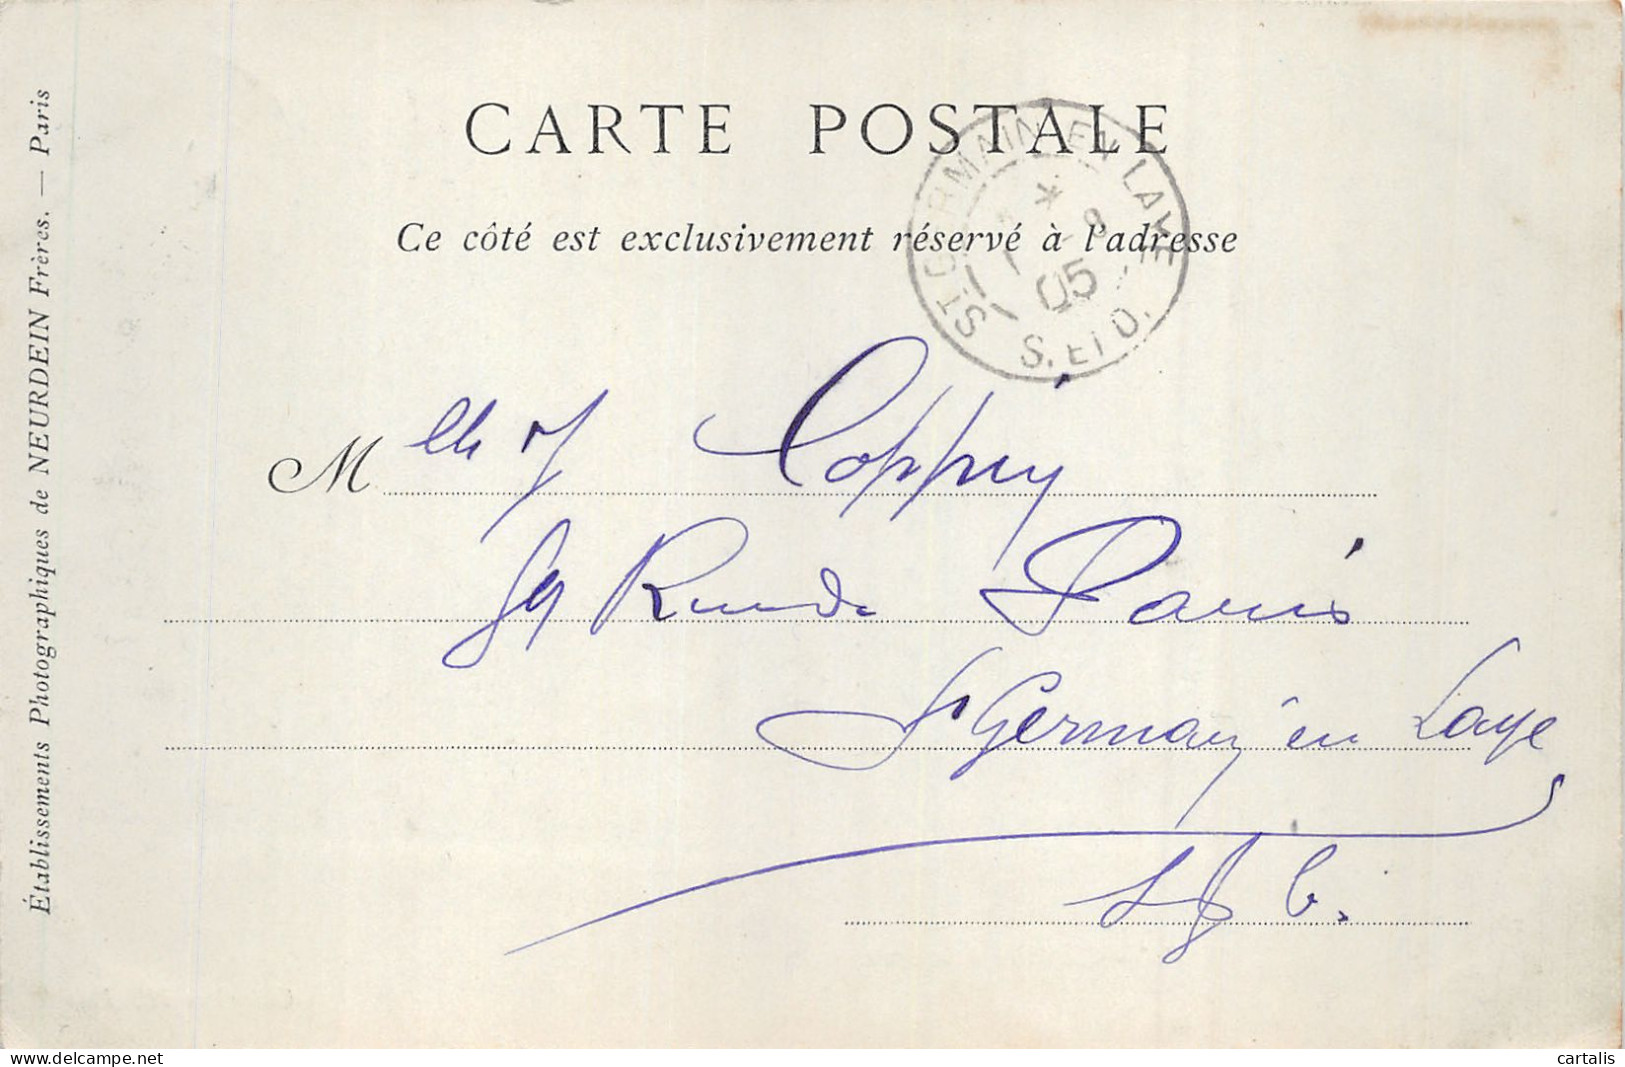 CARTE POSTALE
Ce côté est exclusivement réservé à l'adresse
Établissements Photographiques de NEURDEIN Frères. — Paris
ST GERMAIN-EN-LAYE
8
05
S. ET O.
Melle
Rue de Paris
St Germain en Laye
cartalis
delcampe.net